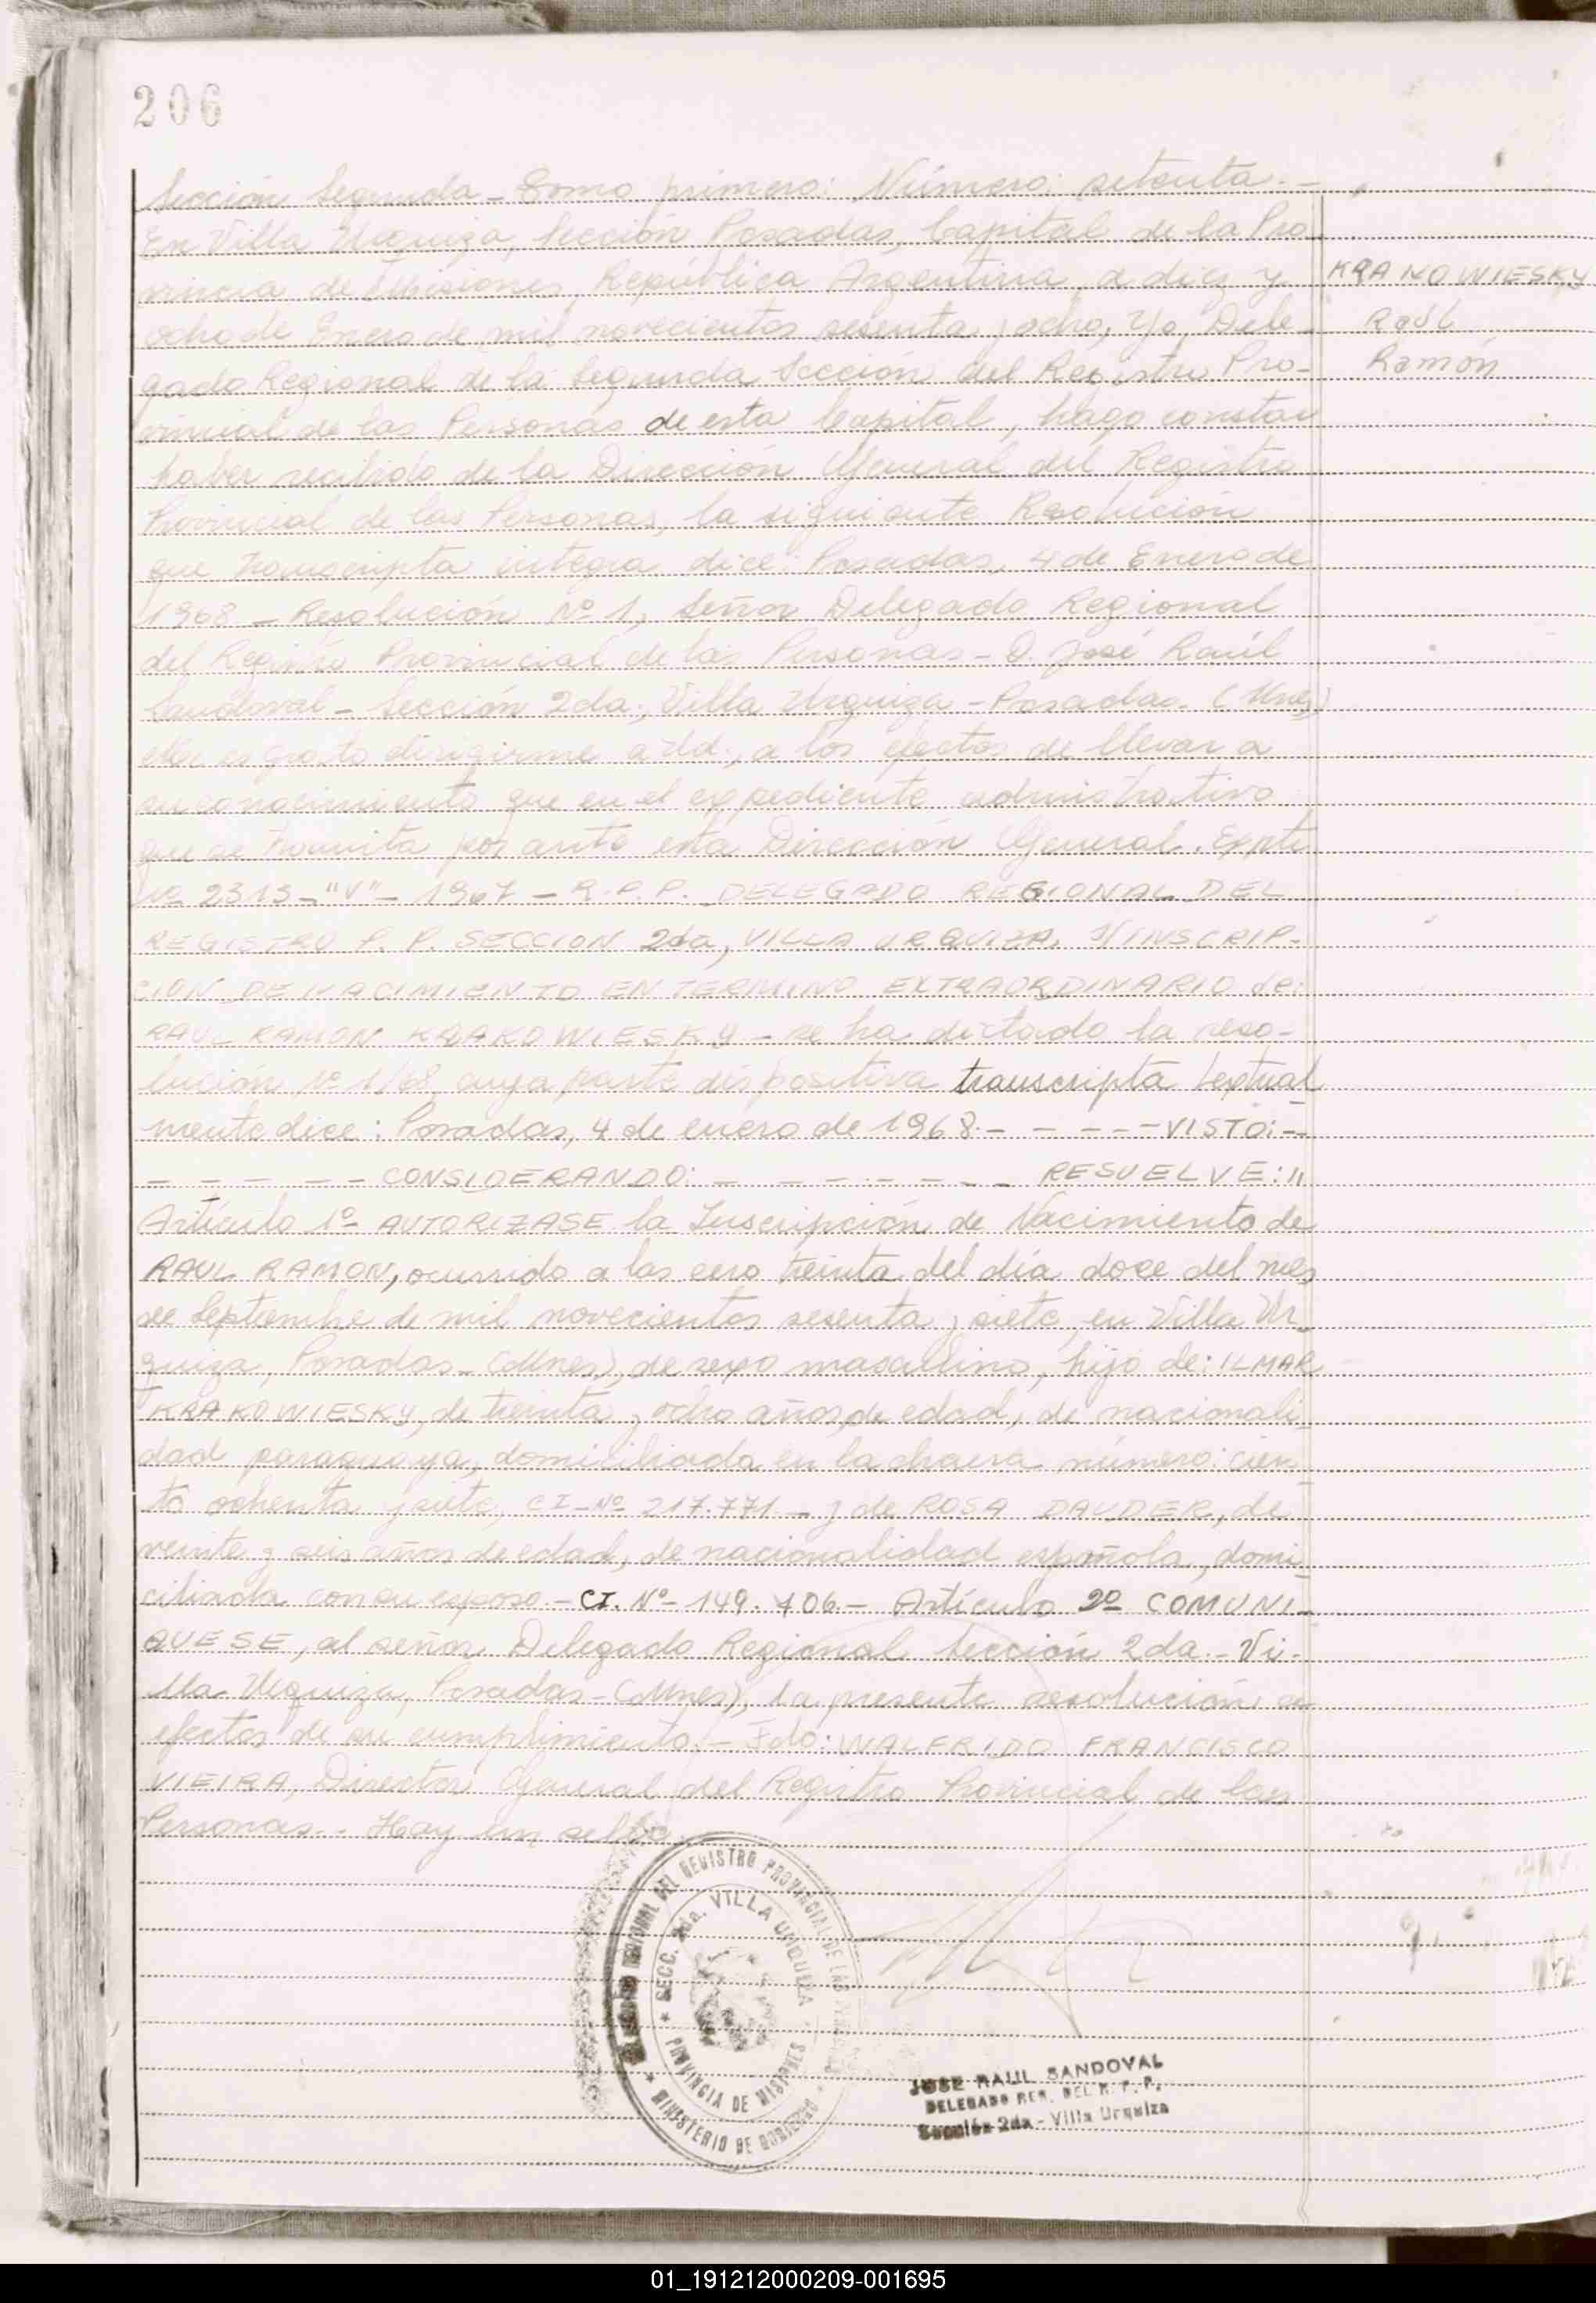 206
Sección Segunda - Tomo primero: Número: setenta.-
En Villa Urquiza, Sección Posadas, Capital de la Pro
vincia de Misiones, República Argentina, a diez y
ocho de Enero de mil novecientos sesenta y ocho, Yo, Dele-
gado Regional de la Segunda Sección del Registro Pro-
vincial de las Personas de esta Capital, hago constar
haber recibido de la Dirección General del Registro
Provincial de las Personas, la siguiente Resolución
que transcripta integra dice: Posadas, 4 de Enero de
1968 - Resolución Nº 1, Señor Delegado Regional
del Registro Provincial de las Personas - D. José Raúl
Sandoval - Sección 2da., Villa Urquiza - Posadas. (Mnes)
Me es grato dirigirme a Ud., a los efectos de llevar a
su conocimiento que en el expediente administrativo
que se tramita por ante esta Dirección General. Expte
Nº 2313-"V"- 1967 - R.P.P. DELEGADO REGIONAL DEL
REGISTRO P. P. SECCION 2da, VILLA URQUIZA, S/INSCRIP-
CION DE NACIMIENTO EN TERMINO EXTRAORDINARIO de:
RAUL RAMON KRAKOWIESKY - se ha dictado la reso-
lución Nº 1/68 cuya parte dispositiva transcripta textual
mente dice: Posadas, 4 de enero de 1968.- - - - - VISTO:--
- - - - - CONSIDERANDO: - - - - - - - RESUELVE:"
Artículo 1º AUTORIZASE la Inscripción de Nacimiento de
RAUL RAMON, ocurrido a las cero treinta del día doce del mes
de Septiembre de mil novecientos sesenta y siete, en Villa Ur-
quiza, Posadas - (Mnes), de sexo masculino, hijo de: ILMAR
KRAKOWIESKY, de treinta y ocho años de edad, de nacionali-
dad paraguaya, domiciliada en la chacra número: cien-
to ochenta y siete, CI-Nº 217.771.- y de ROSA DAUDER, de
veinte y seis años de edad, de nacionalidad española, domi-
ciliada con su esposo - CI. Nº- 149.406.- Artículo 2º COMUNI-
QUESE, al señor Delegado Regional Sección 2da.- Vi-
lla Urquiza, Posadas - (Mnes), la presente resolución a
efectos de su cumplimiento.- Fdo: WALFRIDO FRANCISCO
VIEIRA, Director General del Registro Provincial de las
Personas.- Hay un sello
KRANOWIESKY
Raúl
Ramón
REGIONAL DEL REGISTRO PROVINCIAL DE LAS
SECC. 2da. VILLA URQUIZA
PROVINCIA DE MISIONES
MINISTERIO DE GOBIERNO
JOSE RAUL SANDOVAL
DELEGADO REG. DEL R. P. P.
Sección 2da - Villa Urquiza
01_191212000209-001695